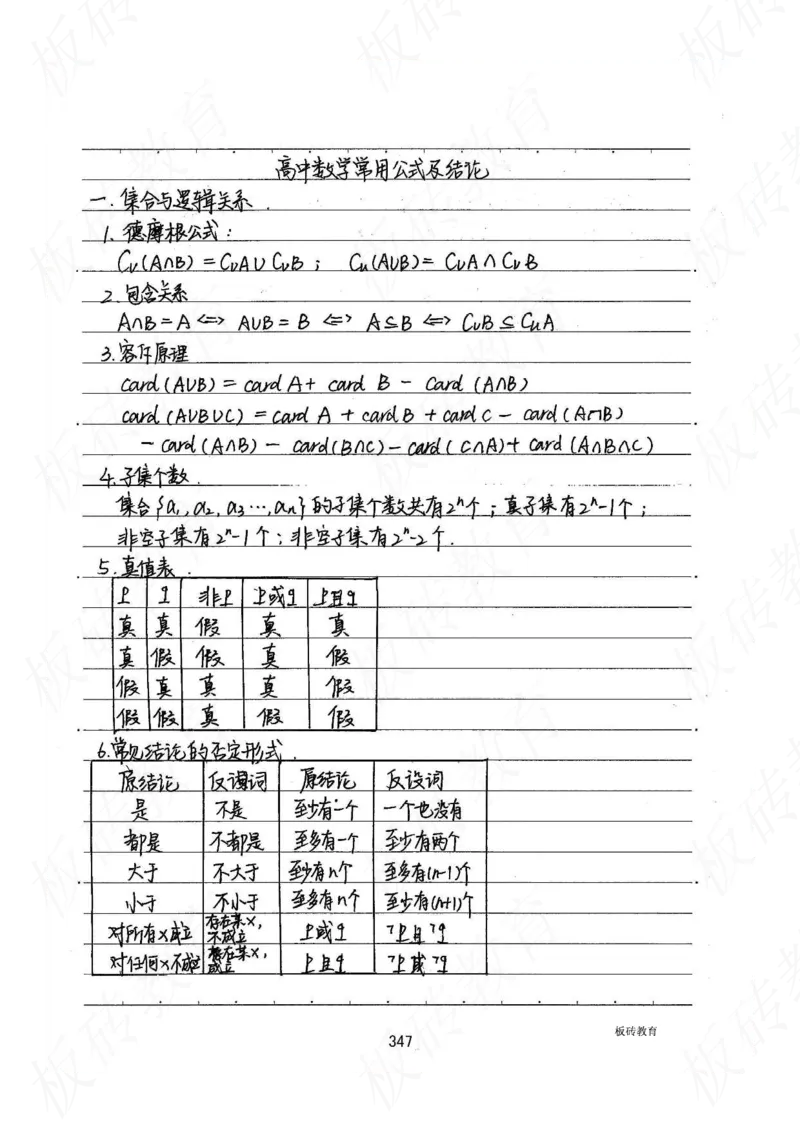 高中数学常用公式及结论
一. 集合与逻辑关系.
1. 德摩根公式:
C∪(A∩B) = C∪A∪C∪B ; Cu(A∪B) = C∪A∩C∪B
2. 包含关系
A∩B=A ⇔ A∪B=B ⇔ A⊆B ⇔ C∪B⊆CuA
3. 容斥原理
card(A∪B) = card A + card B - card (A∩B)
card (A∪B∪C) = card A + card B + card C - card (A∩B)
- card (A∩B) - card(B∩C) - card (C∩A) + card (A∩B∩C)
4. 子集个数.
集合{a₁, a₂, a₃…, aₙ}的子集个数共有2ⁿ个; 真子集有2ⁿ-1个;
非空子集有2ⁿ-1个; 非空子集有2ⁿ-2个.
5. 真值表.
p q 非p p或q p且q
真 真 假 真 真
真 假 假 真 假
假 真 真 真 假
假 假 真 假 假
6. 常见结论的否定形式.
原结论 反设词 原结论 反设词
是 不是 至少有一个 一个也没有
都是 不都是 至多有一个 至少有两个
大于 不大于 至少有n个 至多有(n-1)个
小于 不小于 至多有n个 至少有(n+1)个
对所有x成立 存在某x,不成立 p或q ¬p且¬q
对任何x不成立 存在某x,成立 p且q ¬p或¬q
347
板砖教育